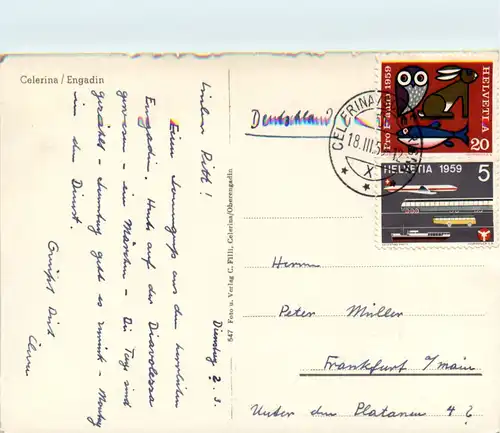 Celerina / Engadin
Dienstag 2. 3.
Lieber
Einen Sonnengruss aus dem herrlichen
Engadin. Heute auf der Diavolezza
gewesen - ein Märchen - Die Tage sind
gezählt - Sonntag geht es zurück - Montag
in den Dienst.
Grüsst Dich
547 Foto u. Verlag C. Filli, Celerina/Oberengadin
Deutschland
CELERINA
18.III.59-12
X
Pro Juventute 1959
HELVETIA
20
HELVETIA 1959
5
Herrn
Peter Müller
Frankfurt a/main
Unter den Platanen 4 ?